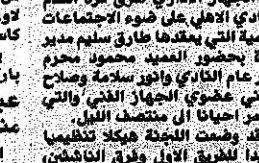 ادي الاهلي على ضوء الاجتماعات
ية التي يعقدها طارق سليم مدير
بحضور العميد محمود محرم
عام النادي وانور سلامة وصلاح
ني عضوي الجهاز الفني والتي
مر احيانا الى منتصف الليل.
وقد وضعت اللجنة هيكلا تنظيميا
للفريق الاول وفرق الناشئين،